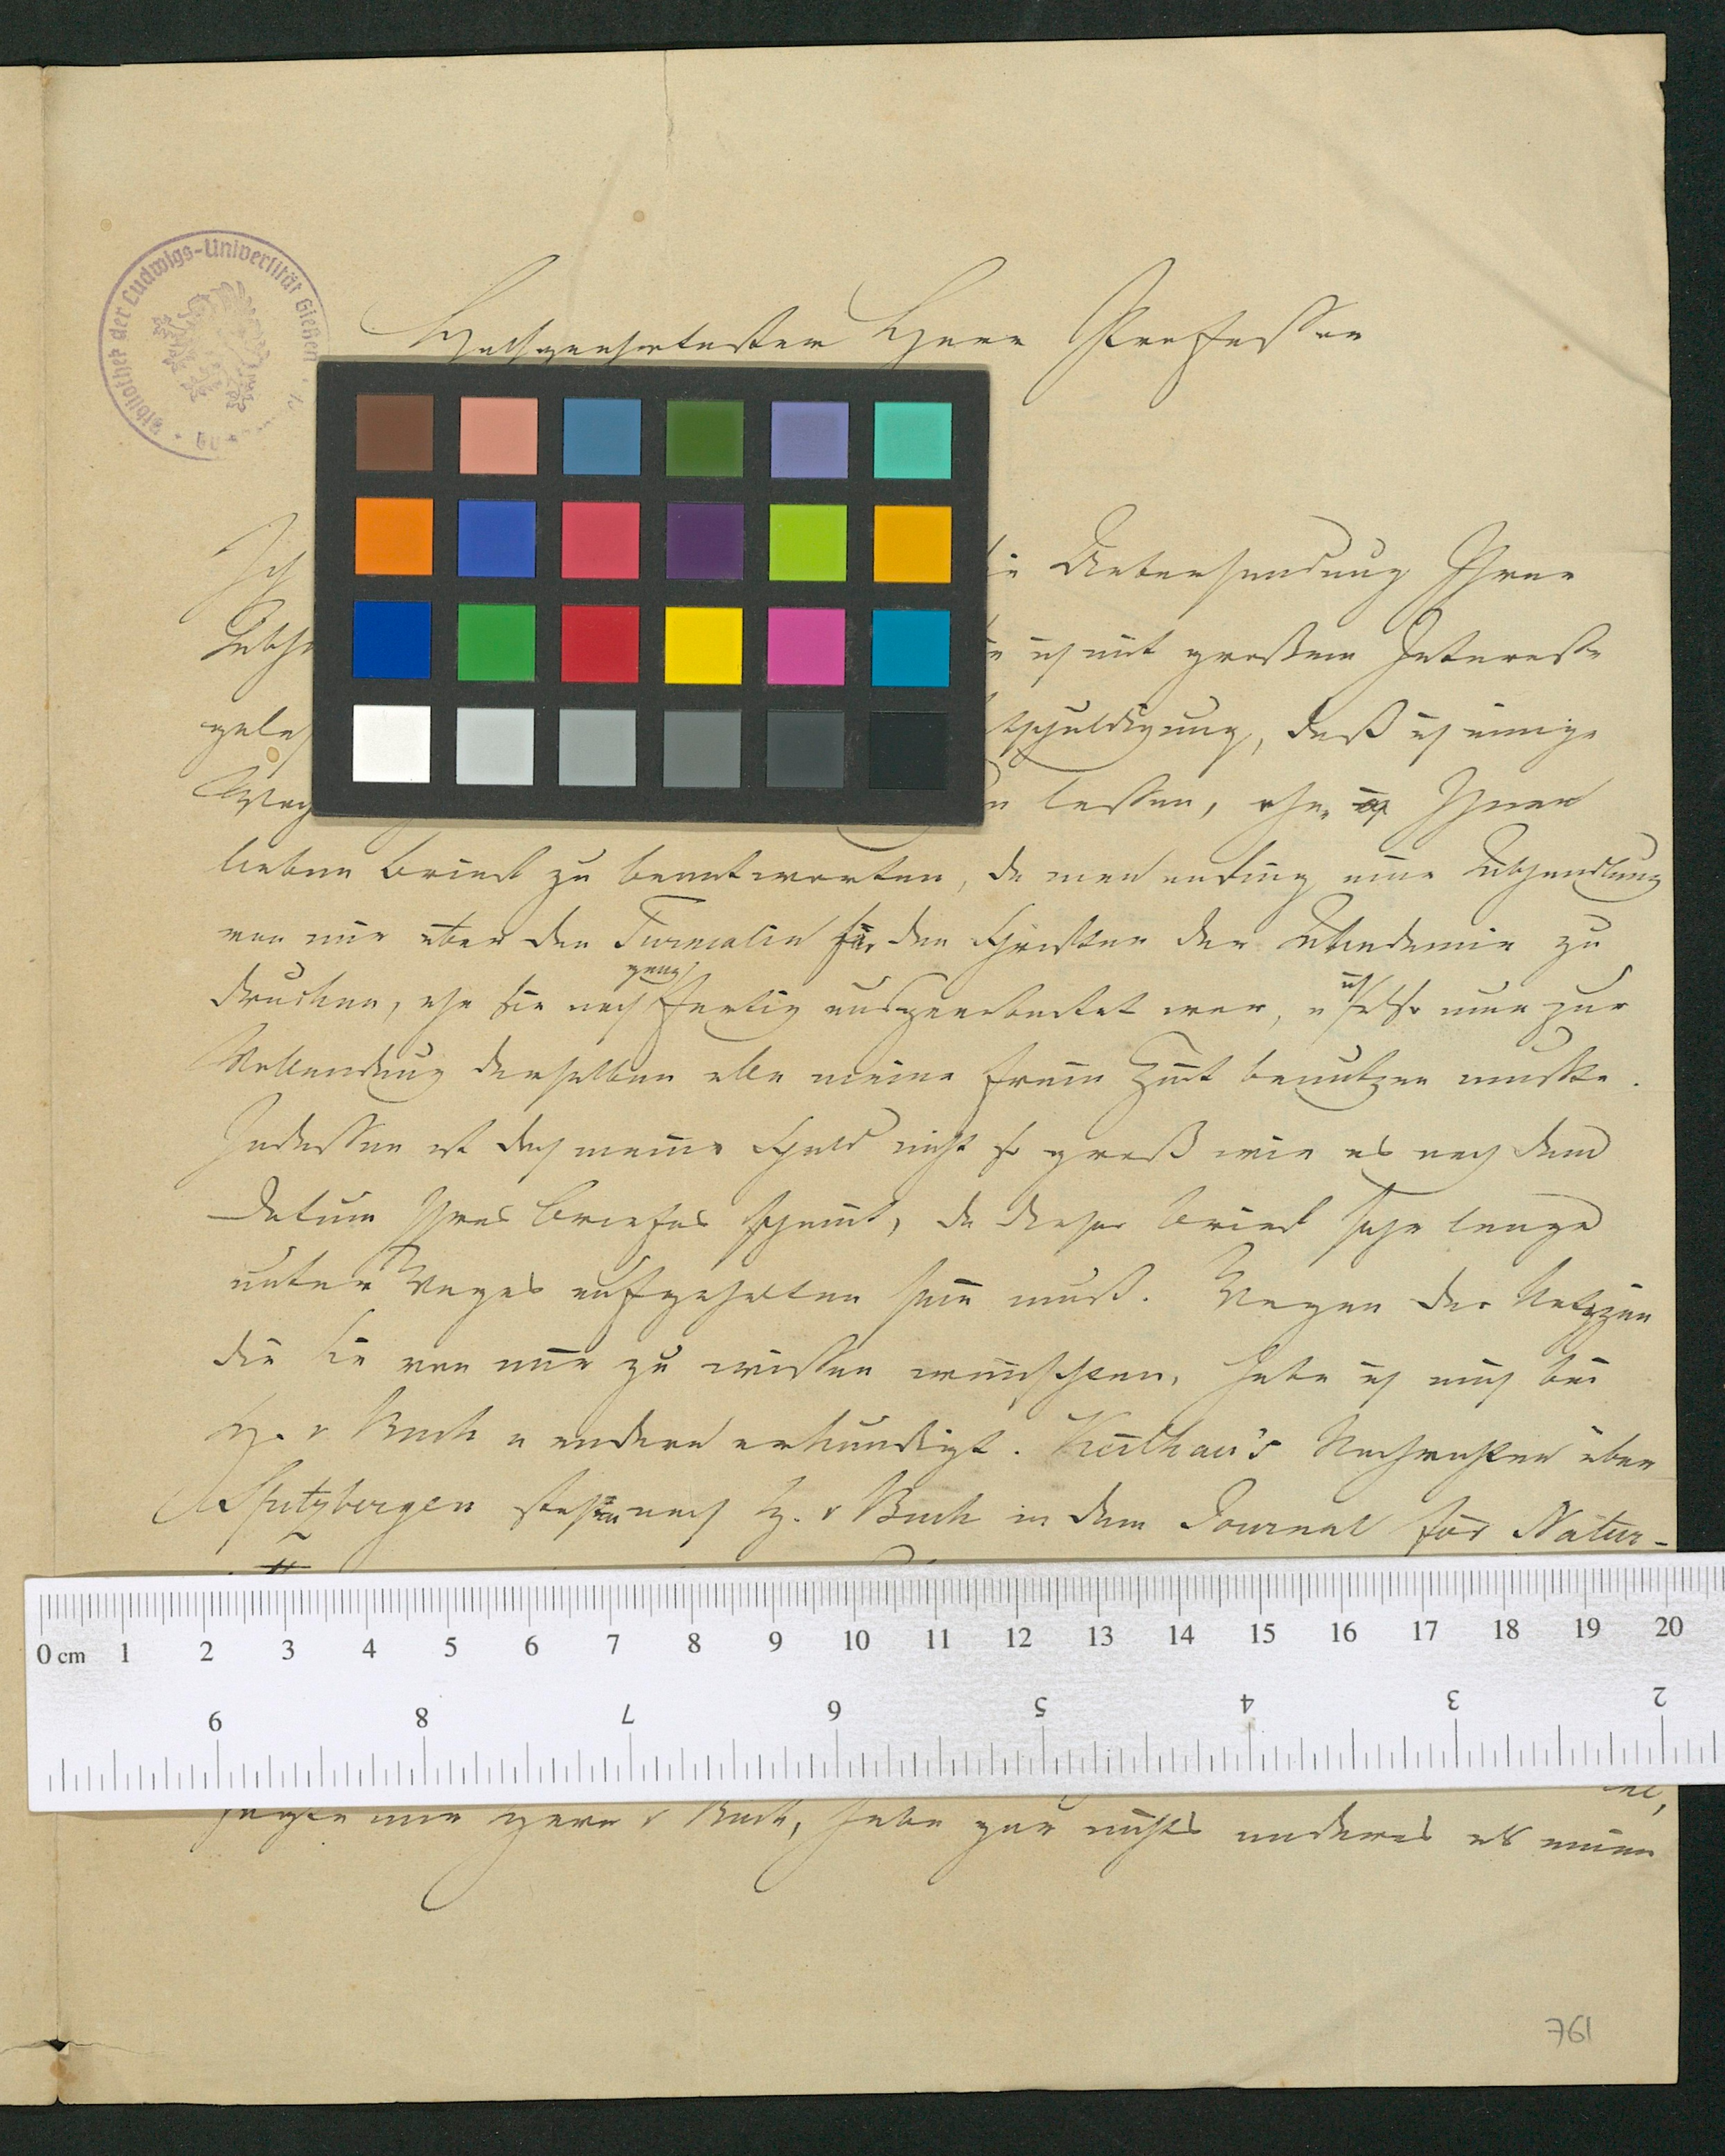 Bibliothek der Ludwigs-Universität Gießen
Hochgeehrtester Herr Professor
Ich
die Uebersendung Ihrer
Abh
ich mit großem Interesse
geles
tschuldigung, daß ich einige
Woch
n lassen, ehe ich Ihren
lieben Brief zu beantworten, da man anfing eine Abhandlung
von mir über den Turmalin für den Schriften der Akademie zu
drucken, ehe sie noch ganz fertig ausgearbeitet war, u ich also nun zur
Vollendung derselben alle meine freie Zeit benutzen mußte.
Indessen ist doch meine Schuld nicht so groß wie es nach dem
Datum Ihres Briefes scheint, da dieser Brief sehr lange
unter Weges aufgehalten sein muß. Wegen der Notizzen
die Sie von mir zu wissen wünschten, habe ich mich bei
H. v Buch u andern erkundigt. Keilhau's Nachrichten über
Spitzbergen stehen nach H. v Buch in dem Journal for Natur-
0 cm 1 2 3 4 5 6 7 8 9 10 11 12 13 14 15 16 17 18 19 20
9 8 7 6 5 4 3 2
sagte mir Herr v Buch, habe gar nichts anderes als einen
761